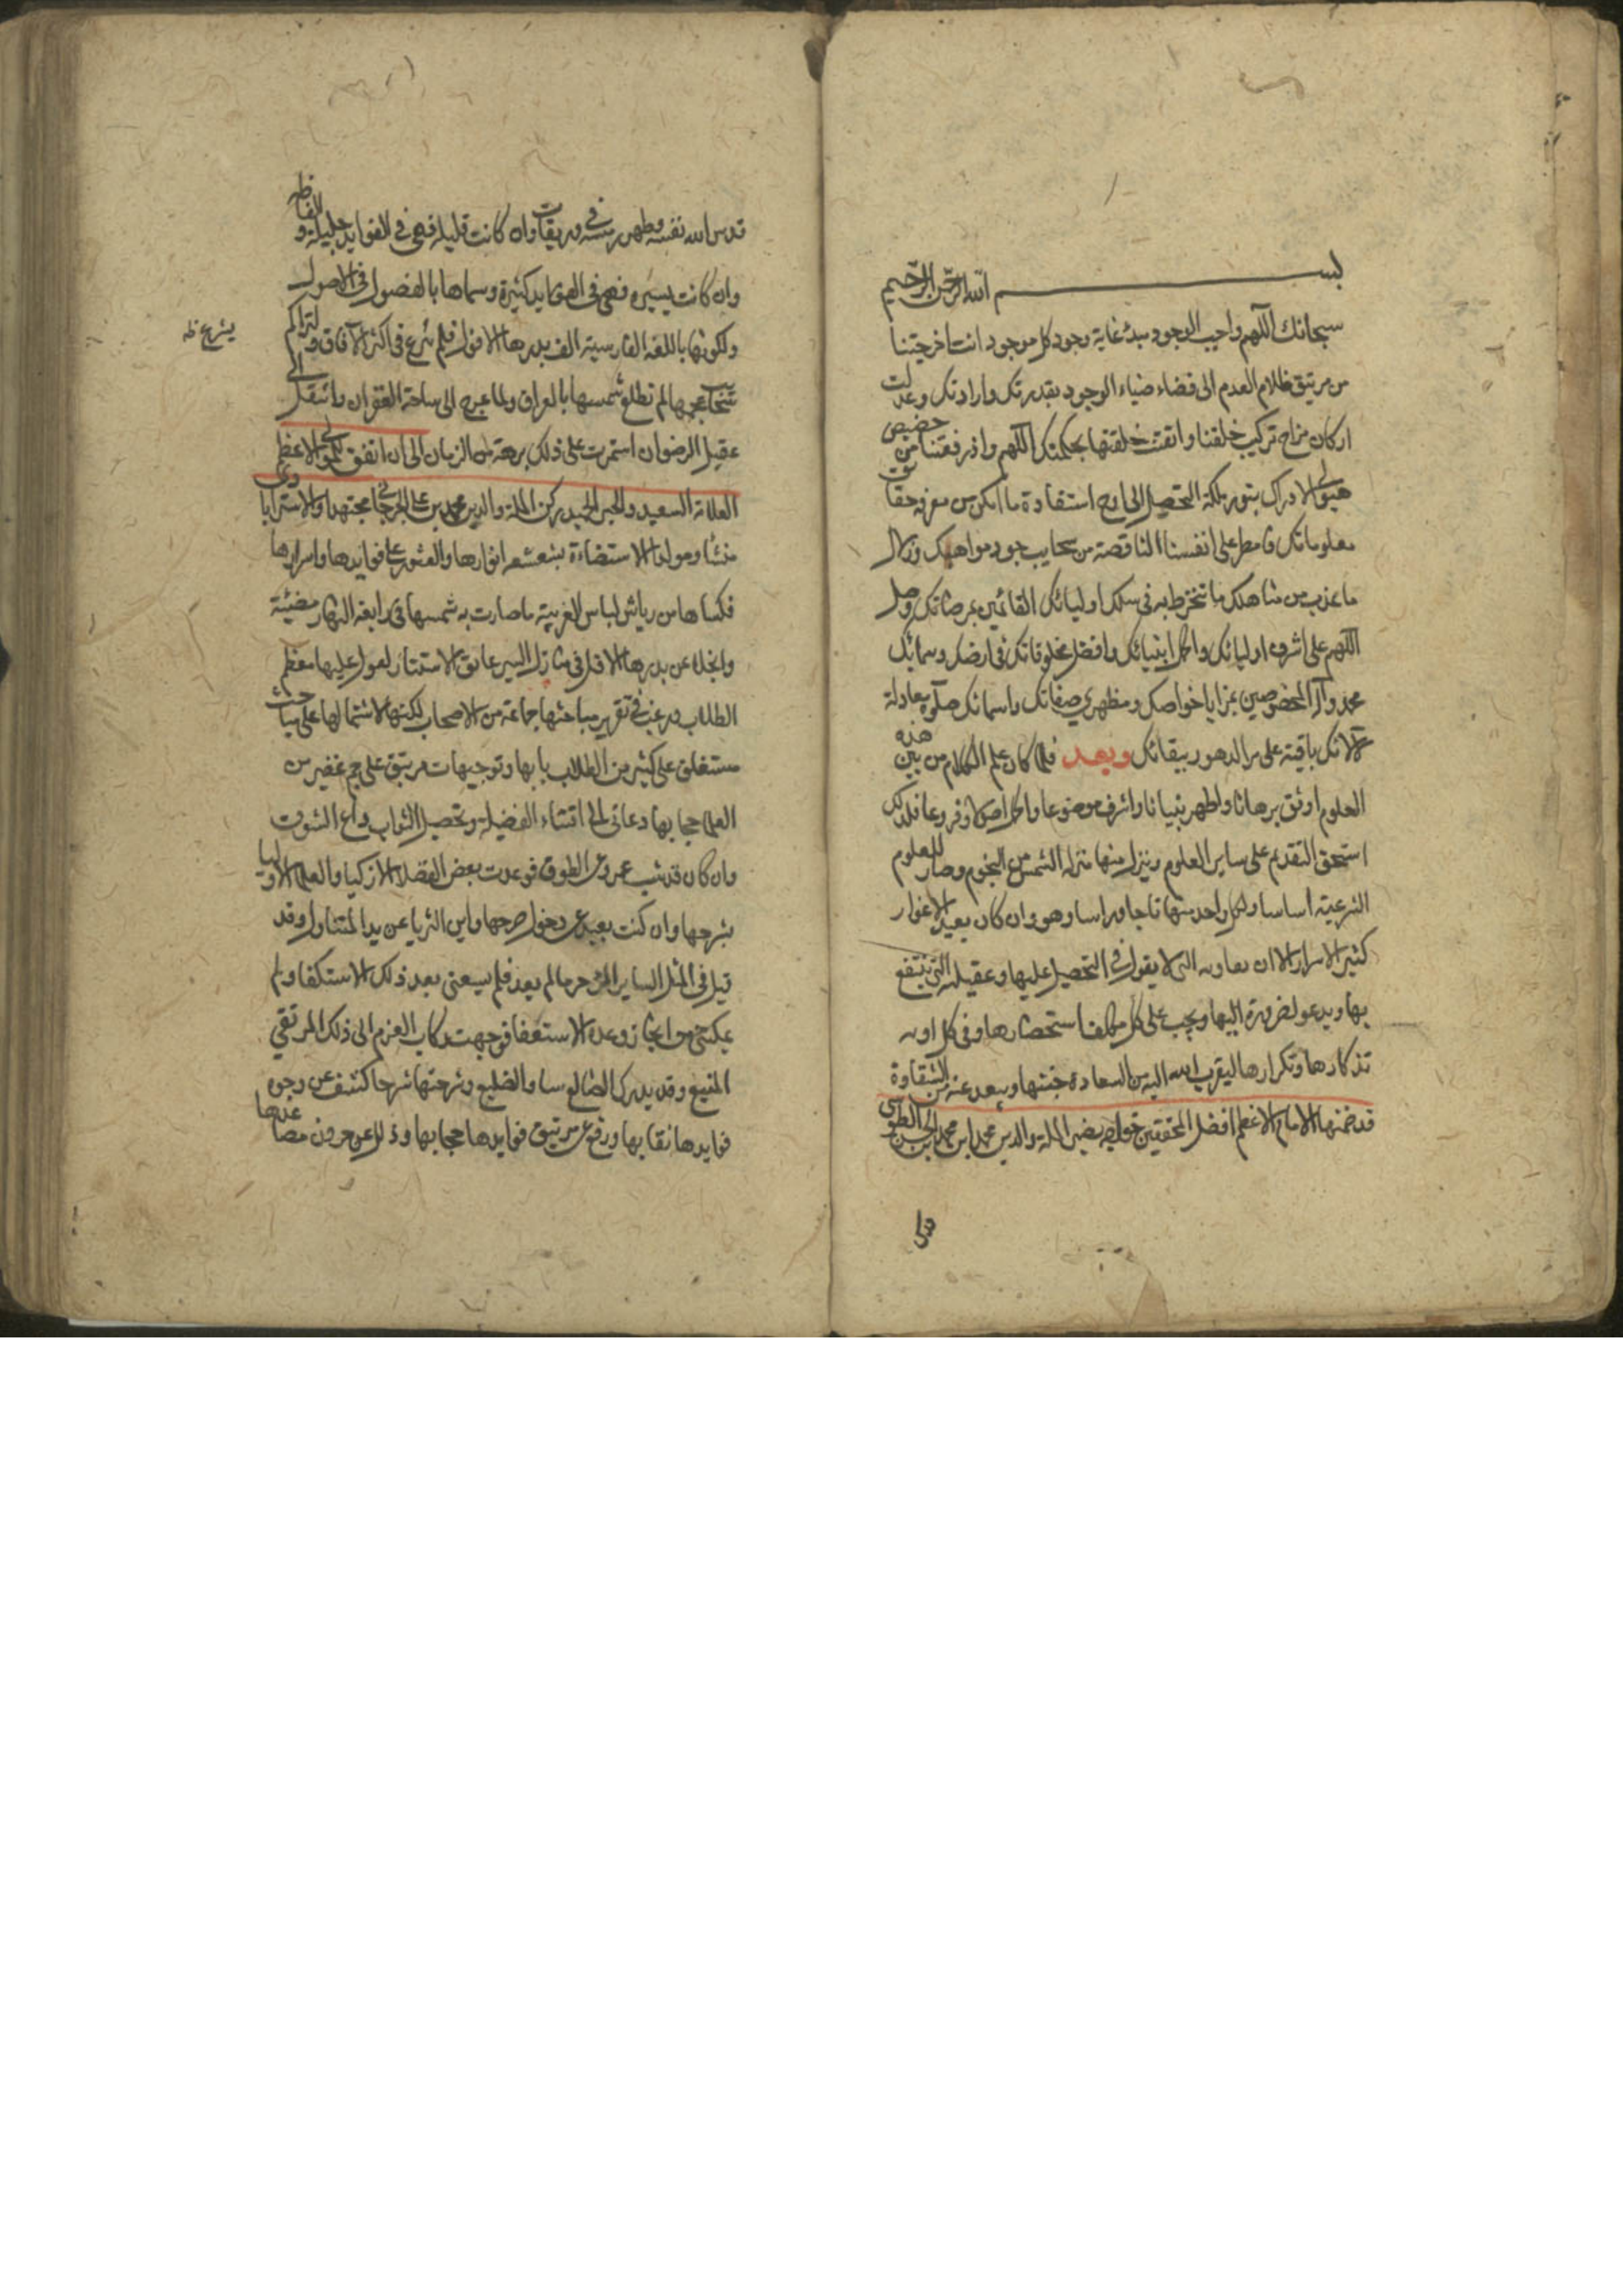 بسم الله الرحمن الرحيم
سبحانك اللهم واجب الوجود مبدئ غاية وجود كل موجود انت اخرجتنا
من ربق ظلام العدم الى فضاء ضياء الوجود بقدرتك وارادتك وعدلت
اركان مزاج تركيب خلقنا واتقنت خلقتها بحكمتك اللهم واذ رفعتنا من حضيض
هيولى الادراك بنور ملكة التحصيل الى اوج استفادة ما امكن من معرفة حقائق
معلوماتك فامطر على انفسنا الناقصة من سحايب جود مواهبك وزلال
ما عذب من مناهلك ما ننخرط به فى سلك اوليائك الفائزين بمرضاتك وصل
اللهم على اشرف اوليائك واكمل انبيائك وافضل مخلوقاتك فى ارضك وسمائك
محمد وآله المخصوصين بمزايا خواصك ومظهري صفاتك واسمائك صلوة معادلة
لآلائك باقية على مر الدهور ببقائك وبعد فلما كان علم الكلام من بين هذه
العلوم اوثق برهانا واطهر بنيانا واشرف موضوعا واكمل اصولا وفروعا فلذلك
استحق التقدم على ساير العلوم ونزل منها منزلة الشمس من النجوم وصار للعلوم
الشرعية اساسا ولكل واحد منها تاجا وراسا وهو وان كان بعيد الاغوار
كثير الاسرار الا ان التى لا يعول فى التحصيل عليها وعقيلته التى ينتفع
بها ويدعو لضرورة اليها ويجب على كل مكلف استحضارها وفى كل اوان
تذكارها وتكرارها ليقرب الله اليه من السعادة جنتها ويبعد عنه من الشقاوة
قد ضمنها الامام الاعظم افضل المحققين خواجه نصير الملة والدين محمد ابن محمد بن الحسن الطوسي
قدس
قدس الله نفسه وطهر رمسه فى وريقات وان كانت قليلة فهى فى الفوايد جليلة والفاظه
وان كانت يسيره فهى فى العوايد كثيرة وسماها بالفصول فى الاصول
ولكونها باللغة الفارسية الف بدرها الافول فلم شرع فى اكثر الآفاق ولتراكم
سحائب عجمها لم تطلع شمسها بالعراق ولما عرج الى ساحة الغفران وانتقل الى
مقيل الرضوان استمرت على ذلك برهة من الزمان الى ان اتفق للمولى الاعظم
العلامة السعيد والحبر المجيد ركن الملة والدين محمد بن على الجرجانى محتدا والاسترابادى
منشأ ومولدا الاستضاءة بشعشعه انوارها والعثور على فوايدها واسرارها
فكساها من رياش لباس العربية ما صارت به شمسها فى رابعة النهار مضيئة
وانجلا عن بدرها الافل فى منازل السير عائق الاستتار لعول عليها معظم
الطلاب ورغب فى تقرير مباحثها جماعة من الاصحاب لكنها لاشتمالها على مباحث
مستغلق على كثير من الطلاب بابها وتوجيهات مرتبق على جم غفير من
العلما حجابها دعانى الى اقتناء الفضيلة وتحصيل الثواب داع الشوق
وان كان قد شب عمرو عن الطوق فوعدت بعض الفضلا الازكيا والعلما الاوليا
بشرحها وان كنت بعيد عن دخول صرحها واين الثريا عن يد المتناول وقد
قيل فى المثل الساير المرء حر ما لم يعد فلم يسعنى بعد ذلك الاستكفا ولم
يمكنني من انجاز وعده الاستعفا فوجهت ركاب العزم الى ذلك المرتقي
المنيع وقد يدرك الضالع شاو الضليع وشرحتها شرحا كشف عن وجوه
فوايدها نقابها ورفع عن مرتبق فوايدها حجابها وذلل عن حرون مصاعدها
يشرع ظ